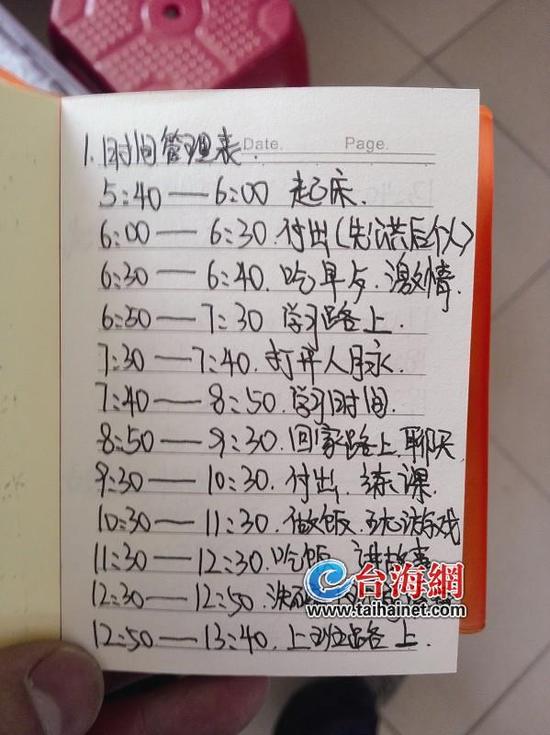 Date. Page.
1.时间管理表.
5:40 — 6:00 起床.
6:00 — 6:30.付出(先公共后个人)
6:30 — 6:40.吃早歺.激情.
6:50 — 7:30 学习路上.
7:30 — 7:40.打开人脉.
7:40 — 8:50.学习时间.
8:50 — 9:30.回家路上.聊天
9:30 — 10:30.付出.练课.
10:30 — 11:30.做饭.玩游戏
11:30 — 12:30.吃饭.讲故事
12:30 — 12:50.
12:50 — 13:40.上班路上.
台海網
www.taihainet.com